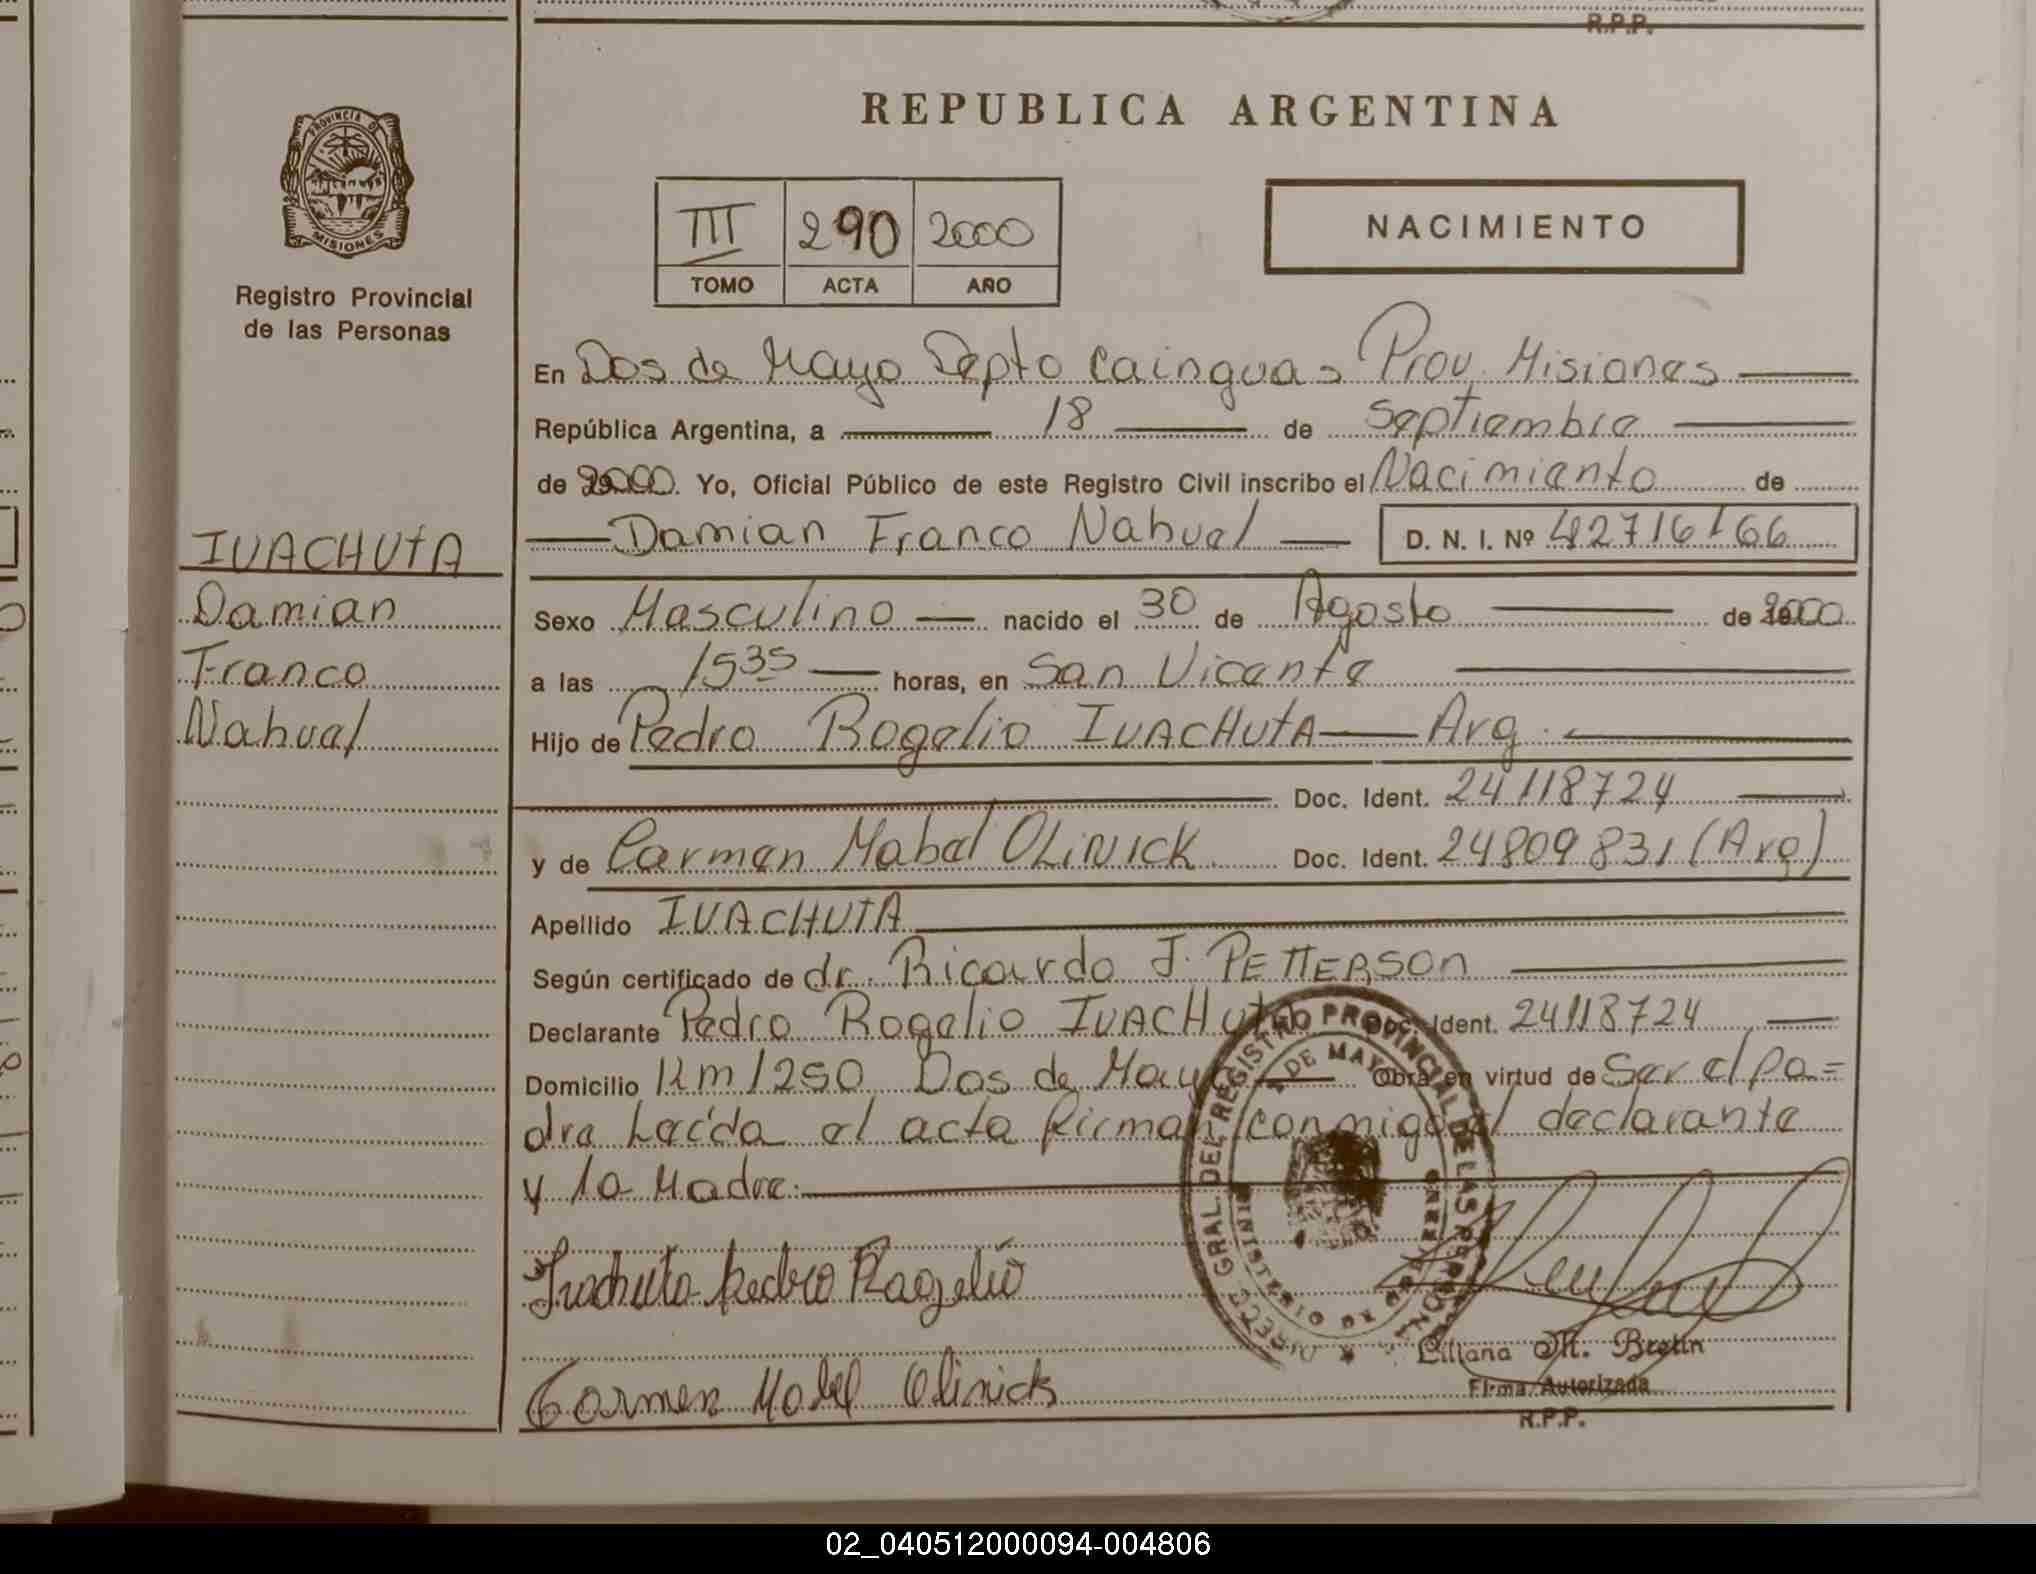 R.P.P.
REPUBLICA ARGENTINA
PROVINCIA DE
MISIONES
Registro Provincial
de las Personas
III 290 2000
TOMO ACTA AÑO
NACIMIENTO
En Dos de Mayo Depto Cainguas Prov. Misiones
República Argentina, a 18 de Septiembre
de 2000. Yo, Oficial Público de este Registro Civil inscribo el Nacimiento de
Damian Franco Nahuel D. N. I. Nº 42716166
IVACHUtA
Damian
Franco
Nahuel
Sexo Masculino nacido el 30 de Agosto de 2000
a las 15 35 horas, en San Vicente
Hijo de Pedro Rogelio IVACHUtA Arg.
Doc. Ident. 24118724
y de Carmen Mabel OLiNICK Doc. Ident. 24809831 (Arg)
Apellido IVACHUtA
Según certificado de dr. Ricardo J. PETTERSON
Declarante Pedro Rogelio IVACHUtA Doc. Ident. 24118724
Domicilio Km 1250 Dos de Mayo Obra en virtud de Ser el pa=
dre Leída el acta firman conmigo el declarante
y la Madre.
Ivachuta Pedro Rogelio
Carmen Mabel Olinick
DIRECC. GRAL. DEL REGISTRO PROVINCIAL DE LAS PERSONAS
2 DE MAYO
MINISTERIO DE GOBIERNO
Liliana M. Bretin
Firma Autorizada
R.P.P.
02_040512000094-004806